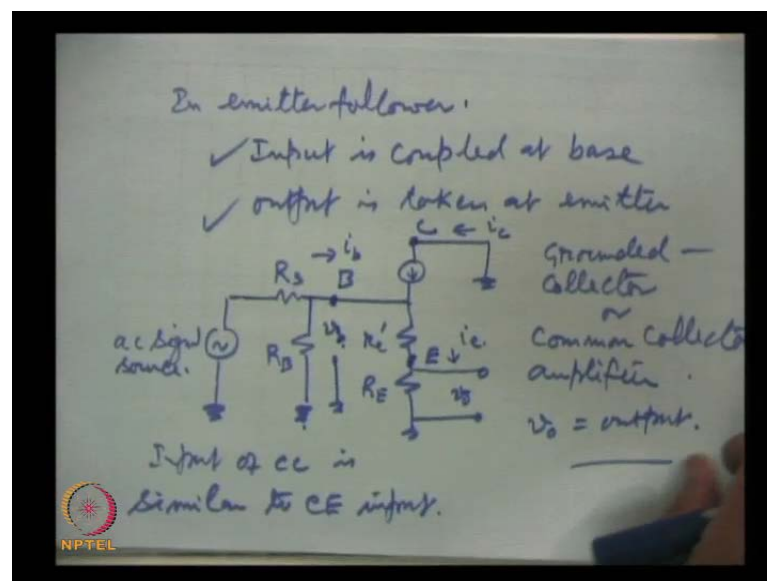 In emitter follower.
✓ Input is coupled at base
✓ output is taken at emitter
C ← ic
→ ib
Rs B
ac signal
source.
RB
vi
re'
E ↓ ie
RE
vo
Grounded —
Collector
or
Common Collector
amplifier.
vo = output.
Input of CC is
similar to CE input.
NPTEL